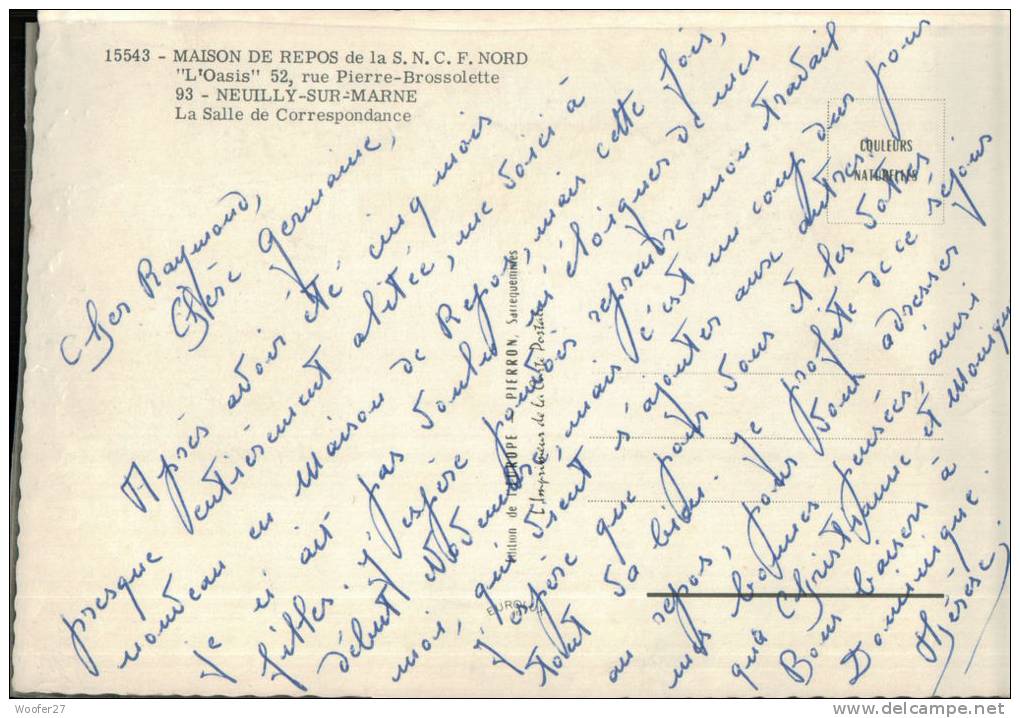 15543 - MAISON DE REPOS de la S. N. C. F. NORD
"L'Oasis" 52, rue Pierre-Brossolette
93 - NEUILLY-SUR-MARNE
La Salle de Correspondance
COULEURS
NATURELLES
Edition de l'EUROPE PIERRON, Sarreguemines
L'Imprimeur de la Carte Postale
EUROLUX
Cher Raymond,
Chère Germaine,
Après avoir été cinq mois
presque entièrement alitée, me voici à
nouveau en Maison de Repos, mais cette fois,
je n'ai pas voulu m'éloigner de mes
filles. J'espère pouvoir reprendre mon travail
début Novembre, mais c'est un coup dur pour
moi, qui vient s'ajouter aux autres.
J'espère que pour vous et les vôtres
tout va bien. Je profite de ce séjour
au repos, pour vous adresser
mes bonnes pensées, ainsi
qu'à Christiane et Monique
Bons baisers à
Dominique.
Thérèse
Woofer27
www.delcampe.net